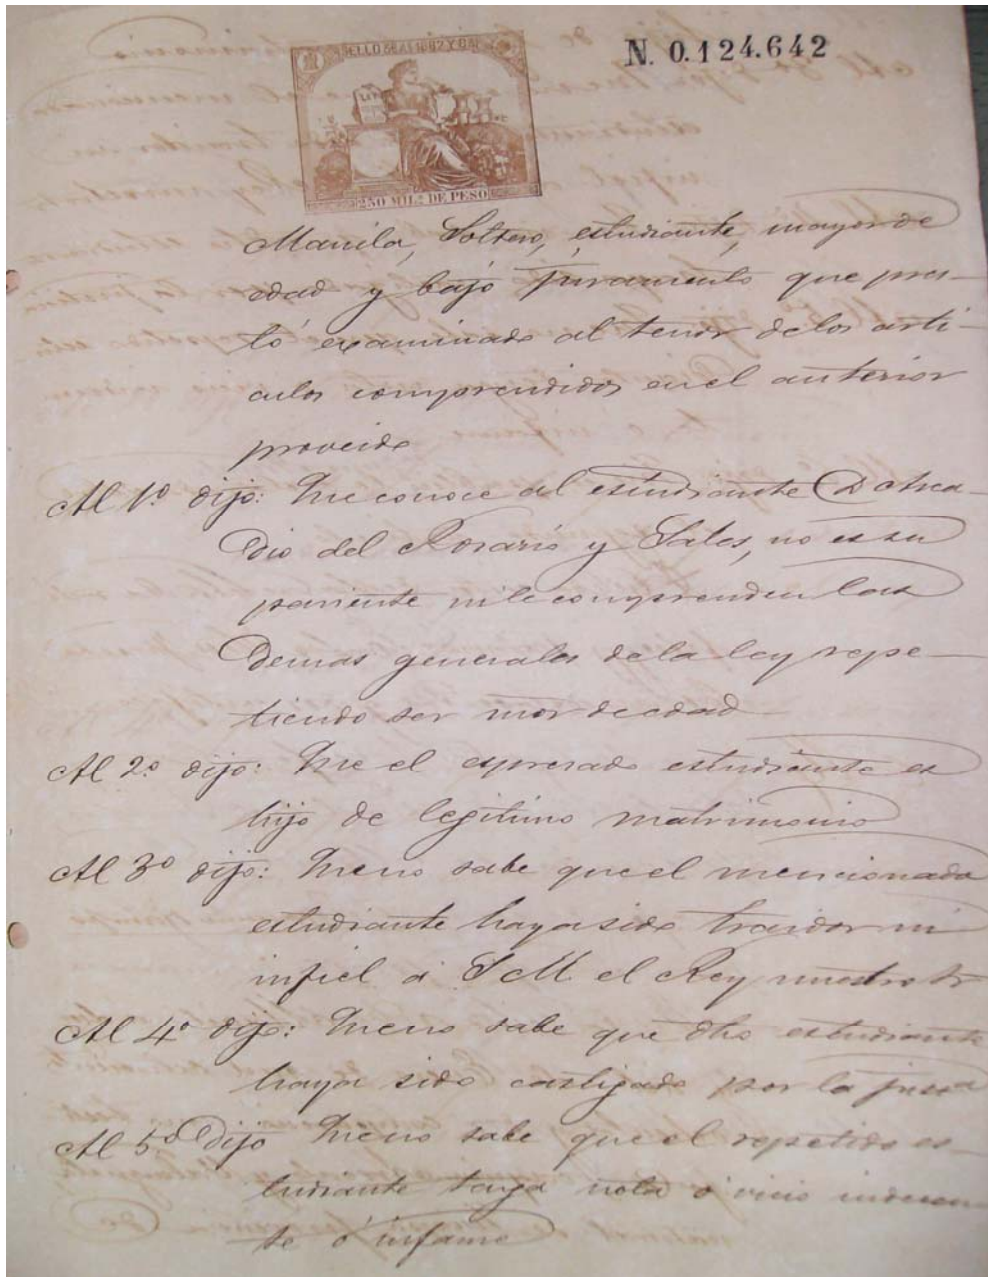 SELLO 3º A.S 1882 Y 83
N. 0.124.642
LEX
250 MIL.s DE PESO
Manila, Soltero, estudiante, mayor de
edad y bajo juramento que pres-
tó examinado al tenor de los arti-
culos comprendidos en el anterior
proveido
Al 1º dijo: Que conoce al estudiante D Arca-
dio del Rosario y Sales, no es su
pariente ni le comprenden las
demas generales de la ley repe-
tiendo ser mor de edad
Al 2º dijo: Que el espresado estudiante es
hijo de legitimo matrimonio
Al 3º dijo: Que no sabe que el mencionado
estudiante haya sido traidor ni
infiel á S M. el Rey nuestro Sr
Al 4º dijo: Que no sabe que dho estudiante
haya sido castigado por la justa
Al 5º Dijo Que no sabe que el repetido es-
tudiante tenga nota ó vicio indecen-
te ó infame